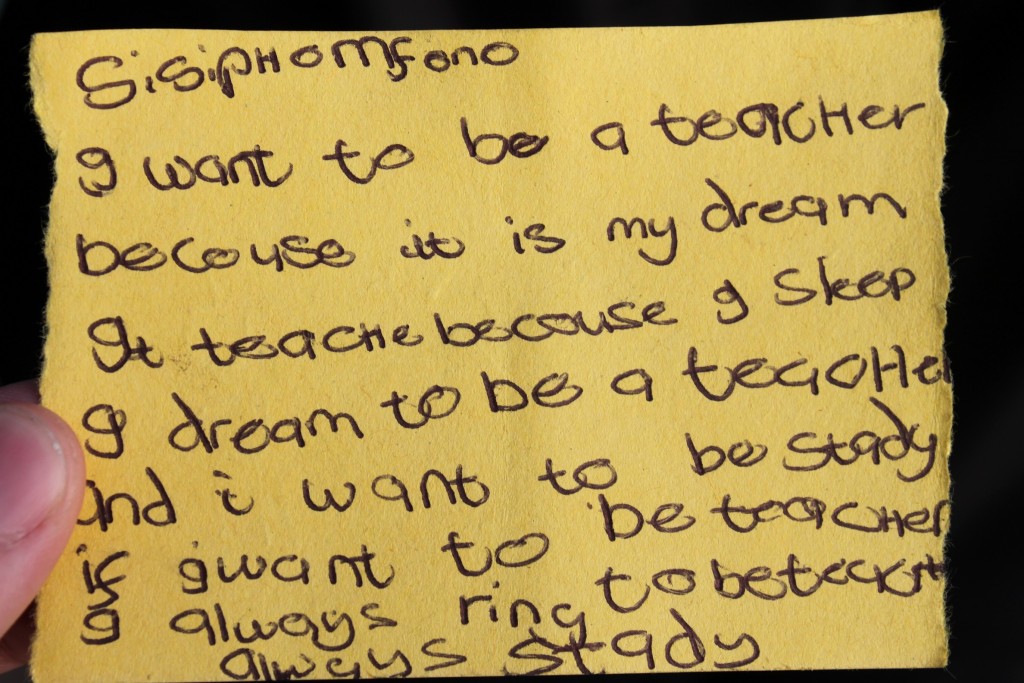 SisiPHO Mfono
I want to be a teacHer
becouse it is my dream
It teacHe becouse I Sleep
I dream to be a teacHer
and i want to be stady
if I want to be teacHer
I always ring to be
always stady